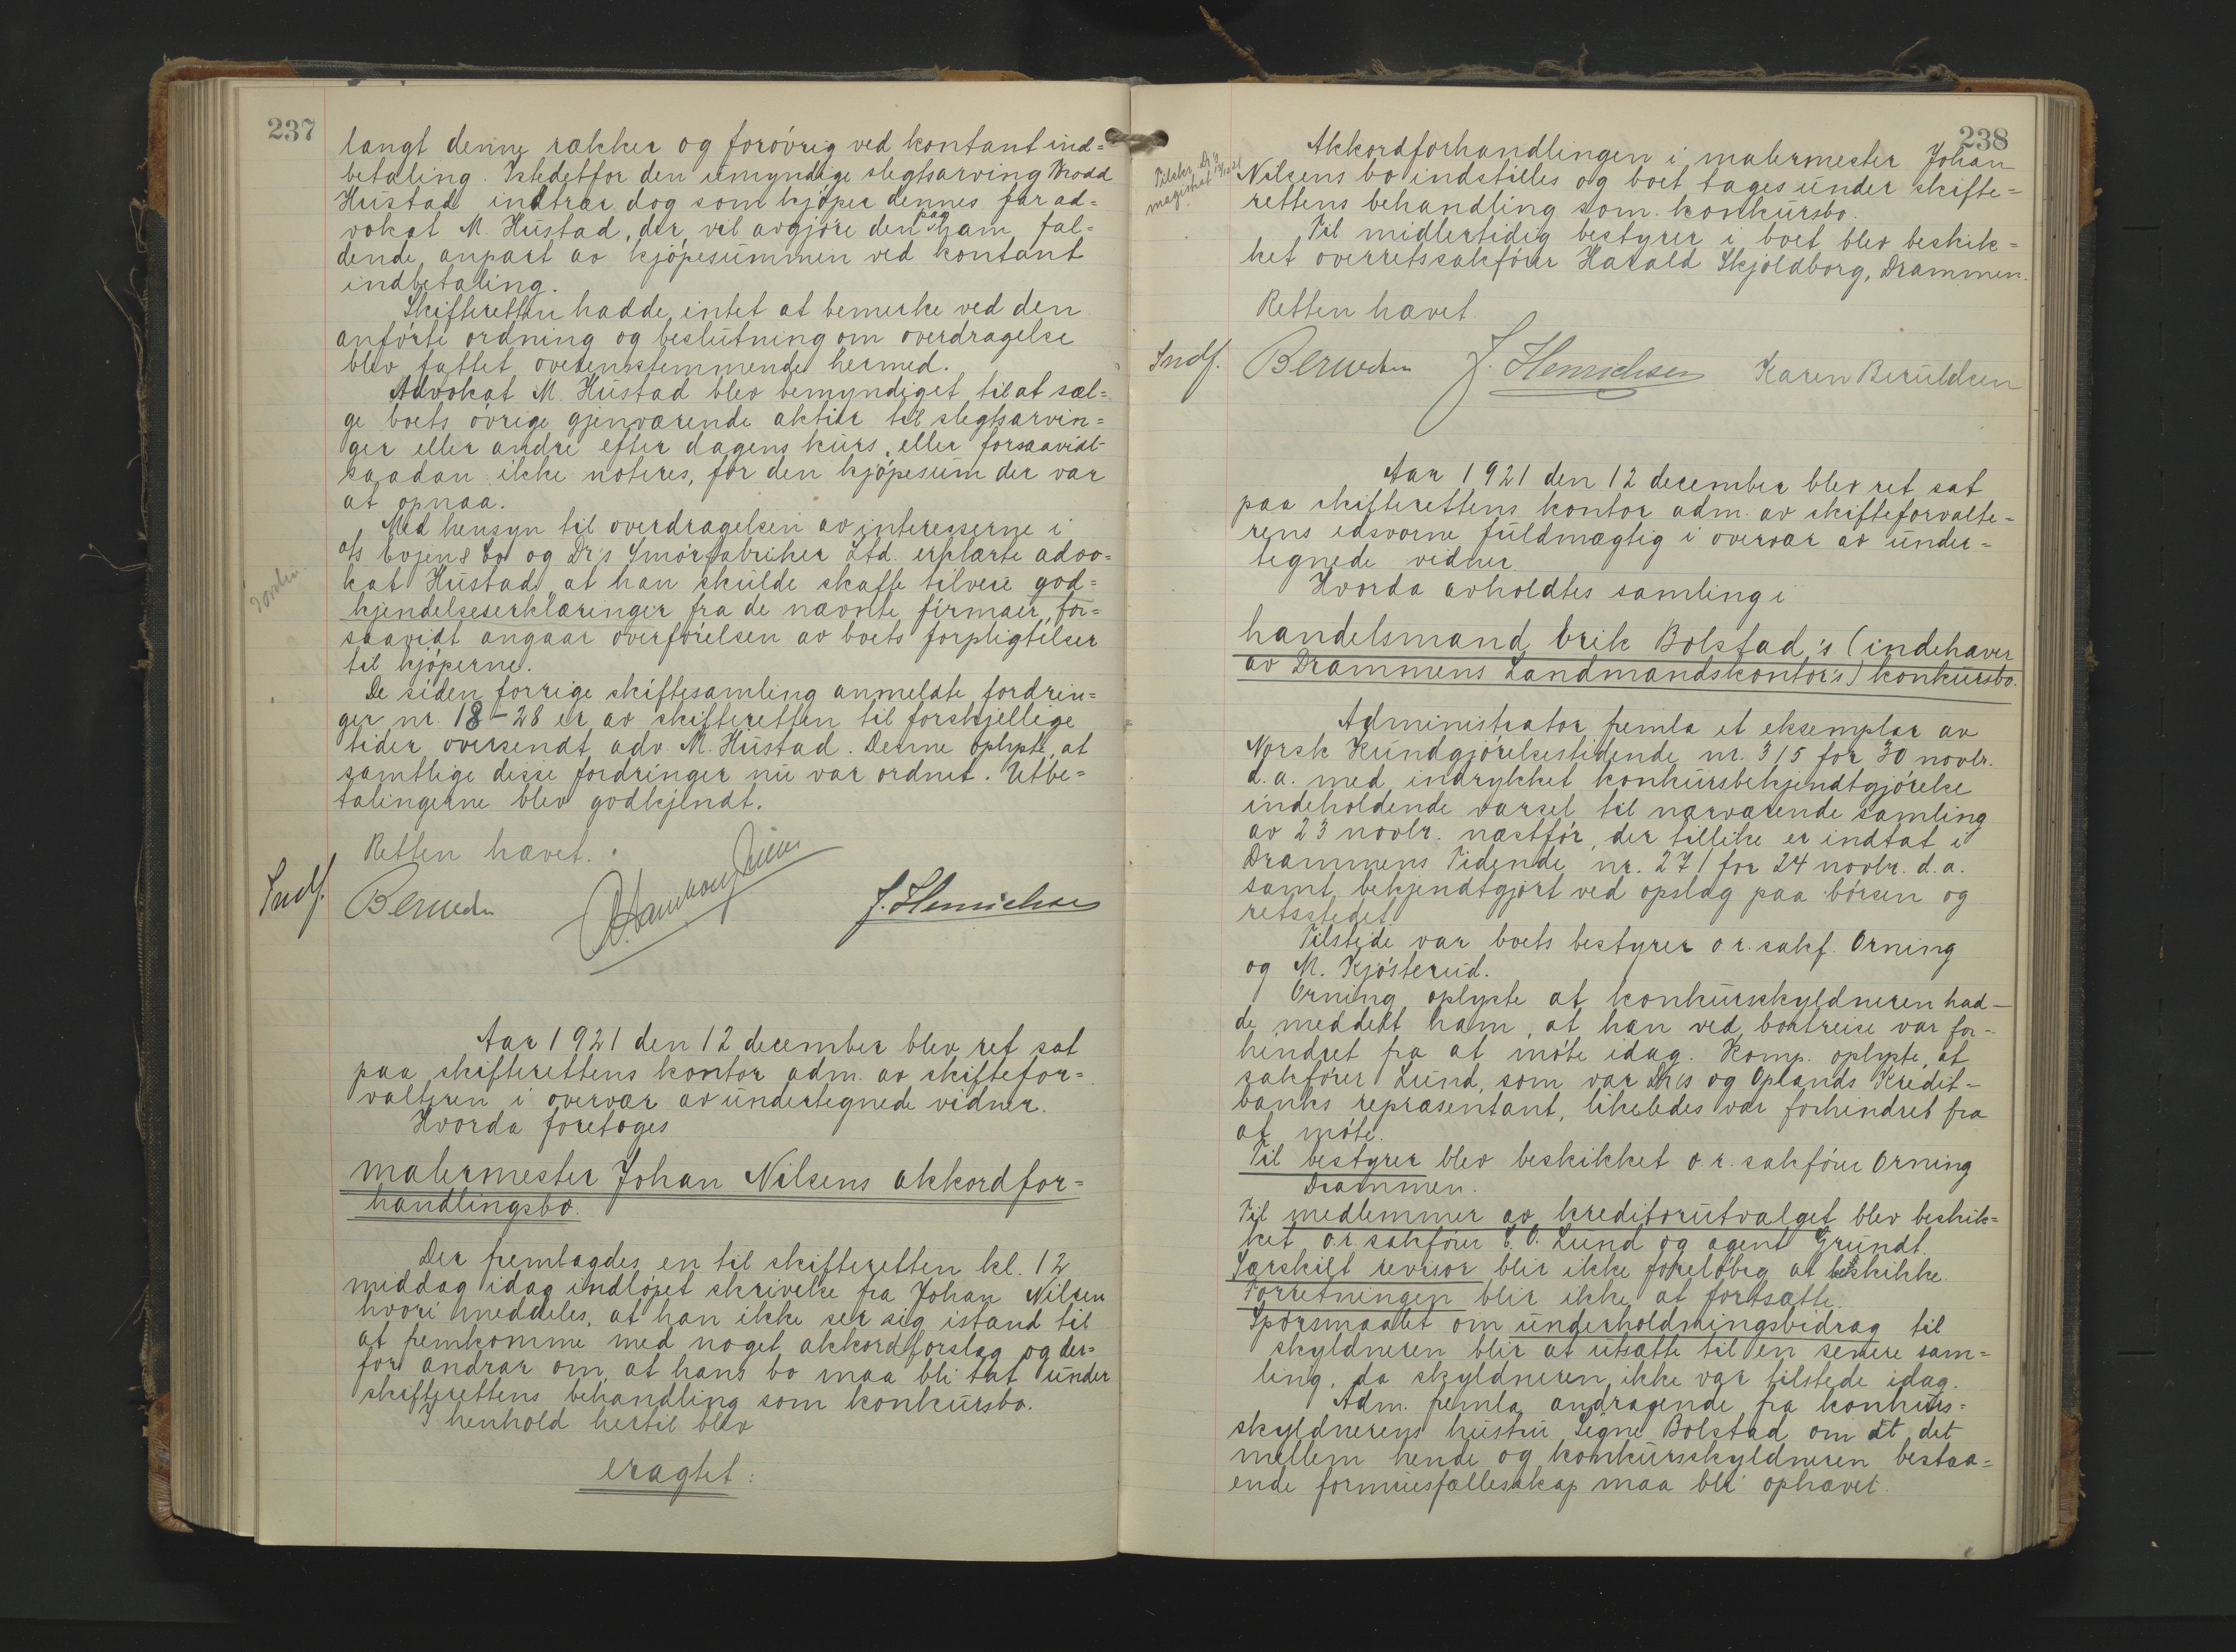 237
langt denne rækker og forøvrig ved kontant ind=
betaling. Istedetfor den umyndige slegtsarving Brodd
Hustad indtrær dog som kjøper dennes far ad=
vokat M. Hustad, der vil avgjøre den paa ham fal=
dende anpart av kjøpesummen ved kontant
indbetaling.
Skifteretten hadde intet at bemerke ved den
anførte ordning og beslutning om overdragelse
blev fattet overensstemmende hermed.
Advokat M. Hustad blev bemyndiget til at sæl=
ge boets øvrige gjenværende aktier til slegtsarvin=
ger eller andre efter dagens kurs, eller forsaavidt
saadan ikke noteres, for den kjøpesum der var
at opnaa.
Med hensyn til overdragelsen av interesserne i
A/s Evjen & Co og Dr/s Smørfabriker Ltd. erklærte advo=
kat Hustad at han skulde skaffe tilveie god=
kjendelseserklæringer fra de nævnte firmaer, for=
saavidt angaar overførelsen av boets forpligtelser
til kjøperne.
De siden forrige skiftesamling anmeldte fordrin=
ger nr. 18-28 er av skifteretten til forskjellige
tider oversendt adv. M. Hustad. Denne oplyste, at
samtlige disse fordringer nu var ordnet. Utbe=
talingerne blev godkjendt.
Retten hævet.
Indf.
J. Henrichsen
Aar 1921 den 12 december blev ret sat
paa skifterettens kontor adm. av skiftefor=
valteren i overvær av undertegnede vidner.
Hvorda foretoges
malermester Johan Nilsens akkordfor=
handlingsbo.
Der fremlagdes en til skifteretten kl. 12
middag idag indløpet skrivelse fra Johan Nilsen
hvori meddeles, at han ikke ser sig istand til
at fremkomme med noget akkordforslag og der=
for andrar om at hans bo maa bli tat under
skifterettens behandling som konkursbo.
I henhold hertil blev
eragtet:
238
Akkordforhandlingen i malermester Johan
Nilsens bo indstilles og boet tages under skifte=
rettens behandling som konkursbo.
Til midlertidig bestyrer i boet blev beskik=
ket overretssakfører Harald Skjoldborg, Drammen.
Retten hævet.
Indf.
J. Henrichsen
Karen Beruldsen
Aar 1921 den 12 december blev ret sat
paa skifterettens kontor adm. av skifteforvalte=
rens edsvorne fuldmægtig i overvær av under=
tegnede vidner.
Hvorda avholdtes samling i
handelsmand Erik Bolstad's (indehaver
av Drammens Landmandskontor's) konkursbo.
Administrator fremla et eksemplar av
Norsk Kundgjørelsestidende nr. 315 for 30 novbr.
d.a. med indrykket konkursbekjendtgjørelse
indeholdende varsel til nærværende samling
av 23 novbr. næstfør, der tillike er indtat i
Drammens Tidende nr. 271 for 24 novbr. d.a.
samt bekjendtgjort ved opslag paa børsen og
retsstedet.
Tilstede var boets bestyrer o.r. sakf. Orning
og M. Kjøsterud.
Orning oplyste at konkursskyldneren had-
de meddelt ham, at han ved bortreise var for-
hindret fra at møte idag. Komp. oplyste, at
sakfører Lund, som var Dr/s og Oplands Kredit-
banks repræsentant, likeledes var forhindret fra
at møte.
Til bestyrer blev beskikket o.r. sakfører Orning
Drammen.
Til medlemmer av kreditorutvalget blev beskik=
ket o.r. sakfører C. O. Lund og agent Grundt.
Særskilt revisor blir ikke foreløbig at beskikke.
Forretningen blir ikke at fortsætte.
Spørsmaalet om underholdningsbidrag til
skyldneren blir at utsætte til en senere sam=
ling, da skyldneren ikke var tilstede idag.
Adm. fremla andragende fra konkurs=
skyldnerens hustru Signe Bolstad om at det
mellem hende og konkursskyldneren bestaa=
ende formuesfællesskap maa bli ophævet.